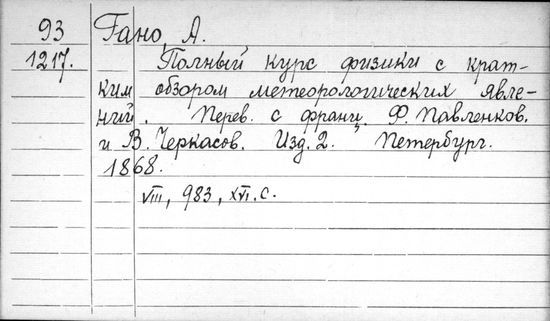 93 Гано, А.
1217. Полный курс физики с крат-
ким обзором метеорологических явле-
ний. Перев. с франц. Ф. Павленков.
и В. Черкасов. Изд. 2. Петербург.
1868.
VIII, 983, XVI. с.